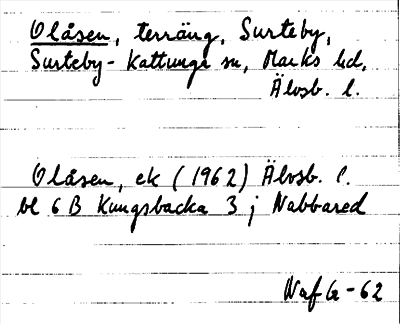 Olåsen, terräng, Surteby,
Surteby-Kattunga sn, Marks hd,
Älvsb. l.
Olåsen, ek (1962) Älvsb. l.
bl 6 B Kungsbacka 3 j Nabbared
Waf G-62